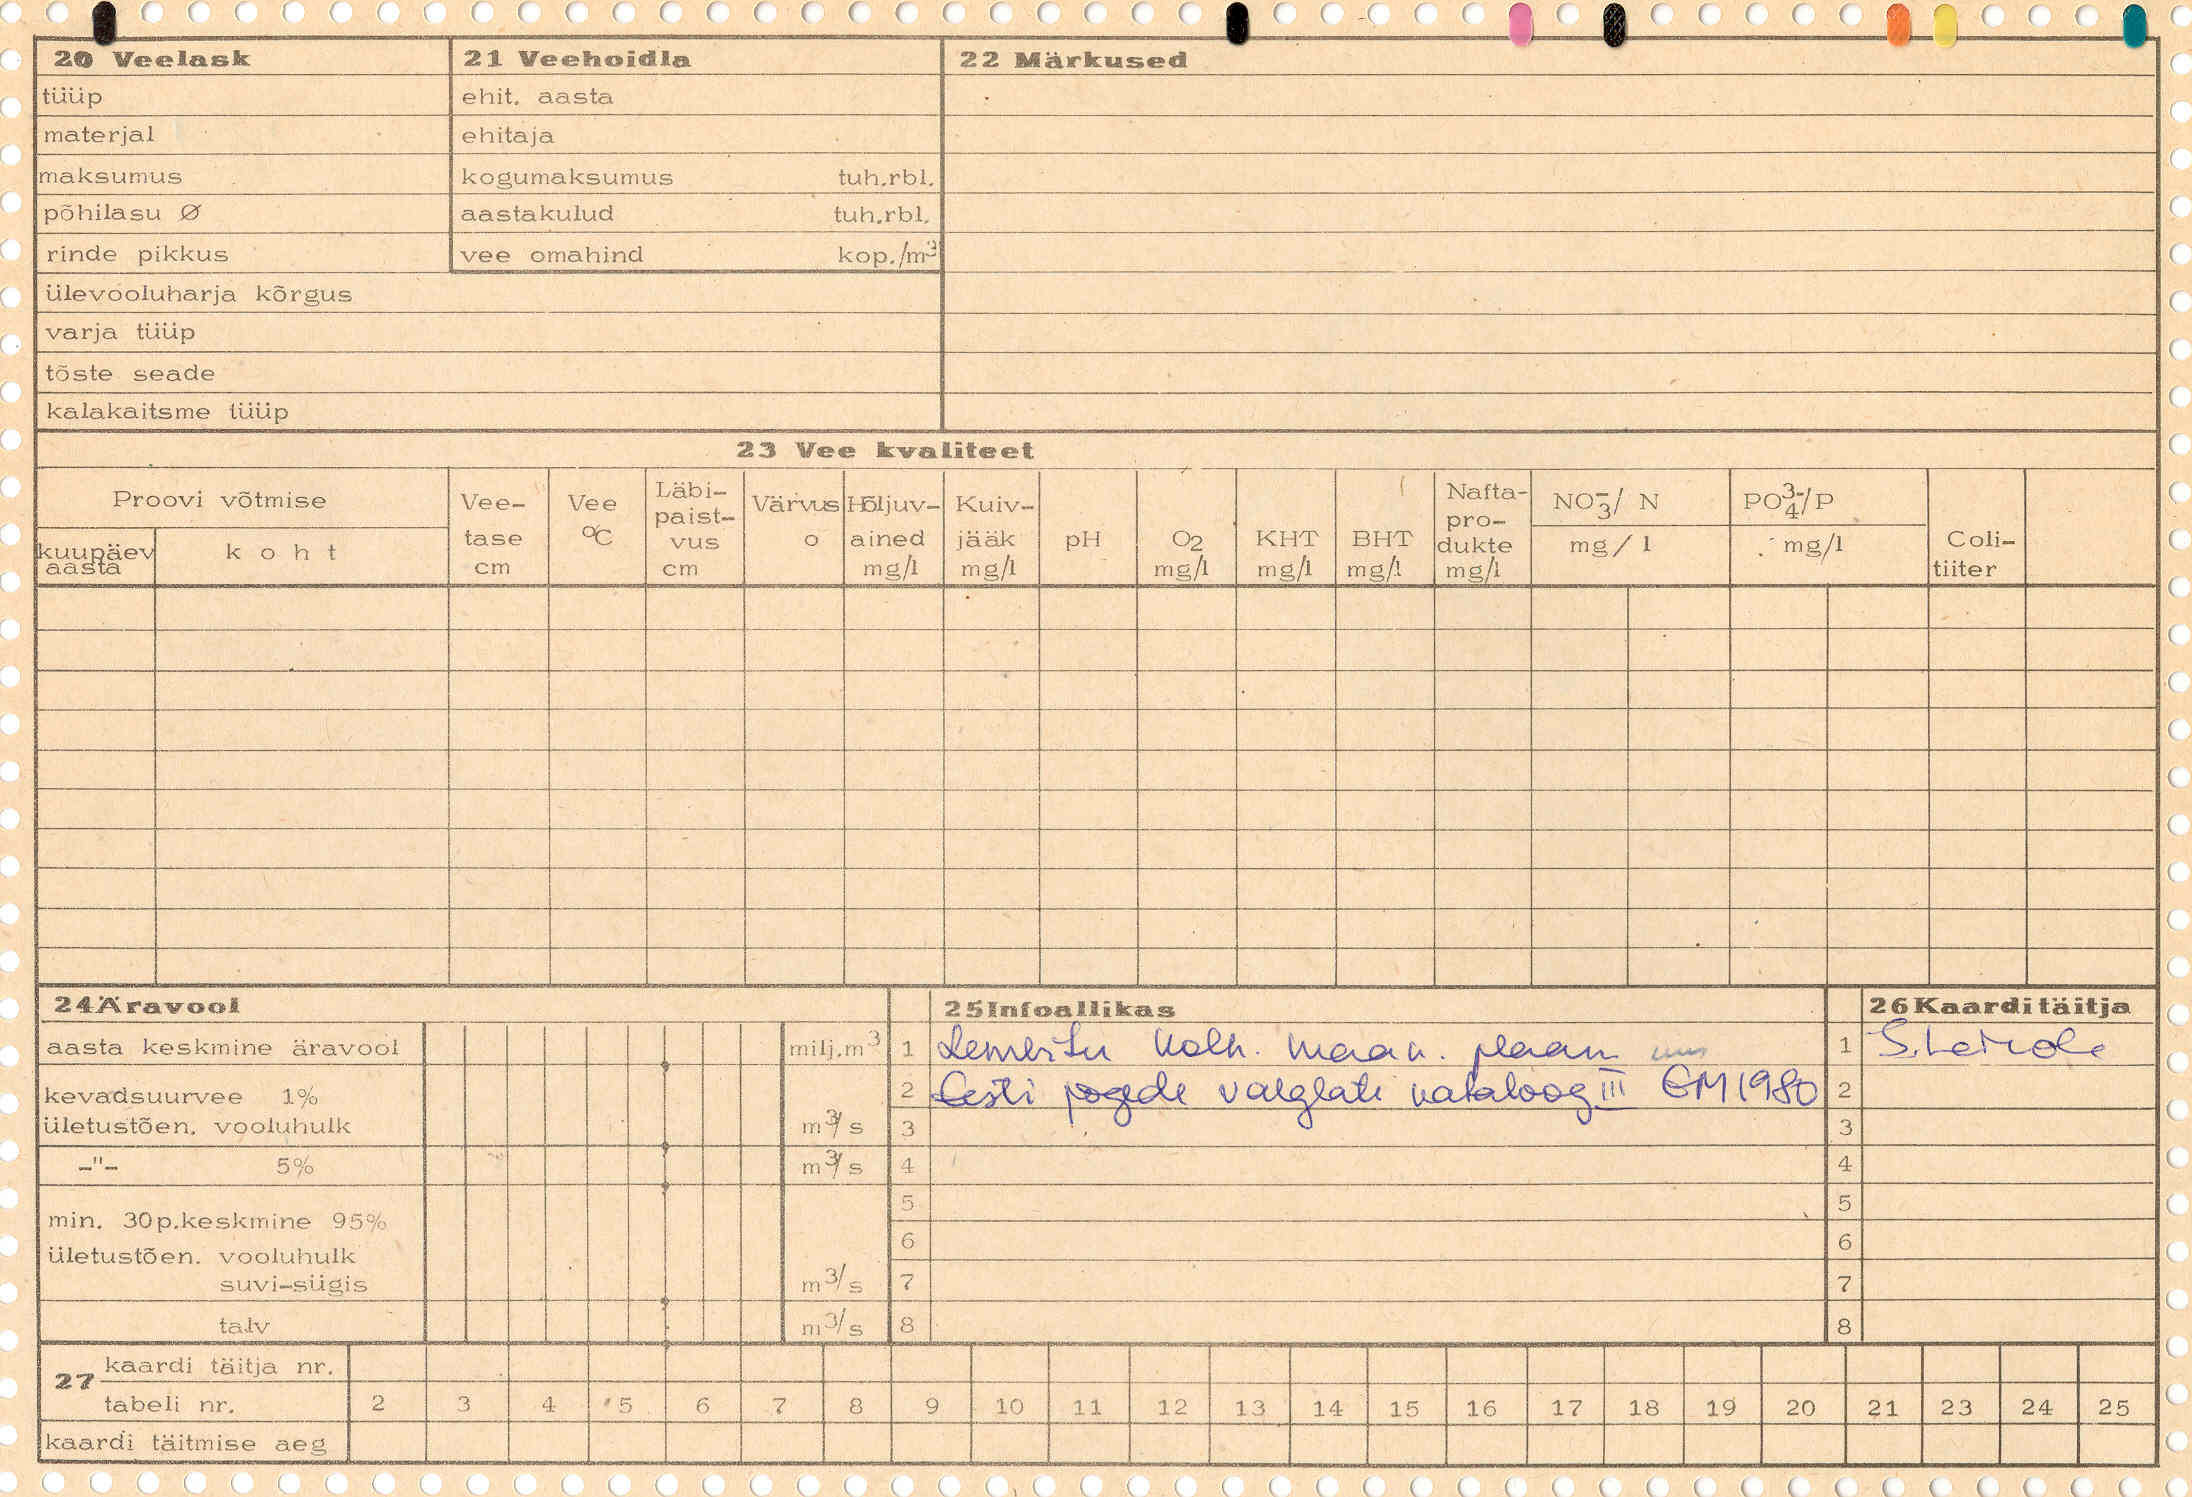 20 Veelask
tüüp
materjal
maksumus
põhilasu Ø
rinde pikkus
ülevooluharja kõrgus
varja tüüp
tõste seade
kalakaitsme tüüp
21 Veehoidla
ehit. aasta
ehitaja
kogumaksumus tuh.rbl.
aastakulud tuh.rbl.
vee omahind kop./m³
22 Märkused
23 Vee kvaliteet
Proovi võtmise
kuupäev aasta
koht
Vee-
tase
cm
Vee
°C
Läbi-
paist-
vus
cm
Värvus
o
Hõljuv-
ained
mg/l
Kuiv-
jääk
mg/l
pH
O2
mg/l
KHT
mg/l
BHT
mg/l
Nafta-
pro-
dukte
mg/l
NO₃⁻/ N
mg/l
PO₄³⁻/P
mg/l
Coli-
tiiter
24 Äravool
aasta keskmine äravool milj.m³
kevadsuurvee 1%
ületustõen. vooluhulk m³/s
-"- 5% m³/s
min. 30p.keskmine 95%
ületustõen. vooluhulk
suvi-sügis m³/s
talv m³/s
25 Infoallikas
1 Lembitu kolh. maak. plaan
2 Eesti jõgede valglate kataloog III EM 1980
3
4
5
6
7
8
26 Kaarditäitja
1
2
3
4
5
6
7
8
27
kaardi täitja nr.
tabeli nr. 2 3 4 5 6 7 8 9 10 11 12 13 14 15 16 17 18 19 20 21 23 24 25
kaardi täitmise aeg